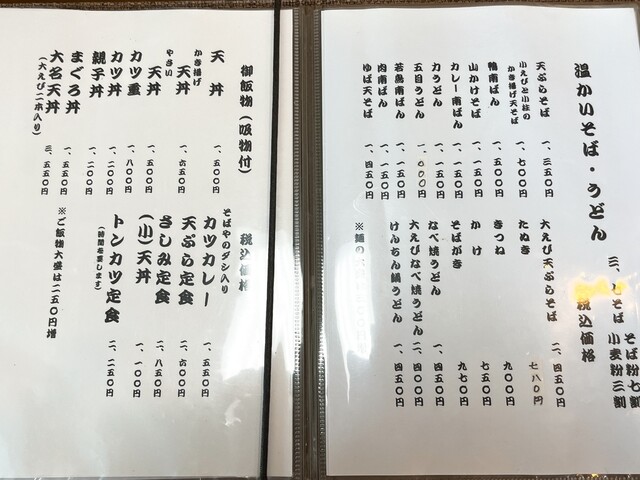 温かいそば・うどん
そば粉七割
小麦粉三割
税込価格
天ぷらそば 一、三五〇円
小えびと小柱の
かき揚げ天そば 一、七〇〇円
鴨南ばん 一、五〇〇円
山かけそば 一、一五〇円
カレー南ばん 一、一五〇円
力うどん 一、一五〇円
五目うどん
若鳥南ばん 一、一五〇円
肉南ばん 一、一五〇円
ゆば天そば 一、四五〇円
大えび天ぷらそば 二、四五〇円
たぬき 七八〇円
きつね 九〇〇円
かけ 七五〇円
そばがき 九七〇円
なべ焼うどん 一、四五〇円
大えびなべ焼うどん 二、四〇〇円
けんちん鍋うどん 一、四五〇円
※麺の
御飯物(吸物付)
税込価格
天丼 一、五〇〇円
かき揚げ
天丼 一、六五〇円
やさい
天丼 一、五〇〇円
カツ重 一、八〇〇円
カツ丼 一、二〇〇円
親子丼 一、二〇〇円
まぐろ丼 一、五五〇円
大名天丼 三、五五〇円
(大えび二本入り)
そばやのダシ入り
カツカレー 一、五五〇円
天ぷら定食 二、六〇〇円
さしみ定食 二、八五〇円
(小)天丼 一、一〇〇円
トンカツ定食 二、二五〇円
(時間を要します)
※ご飯物大盛は二五〇円増